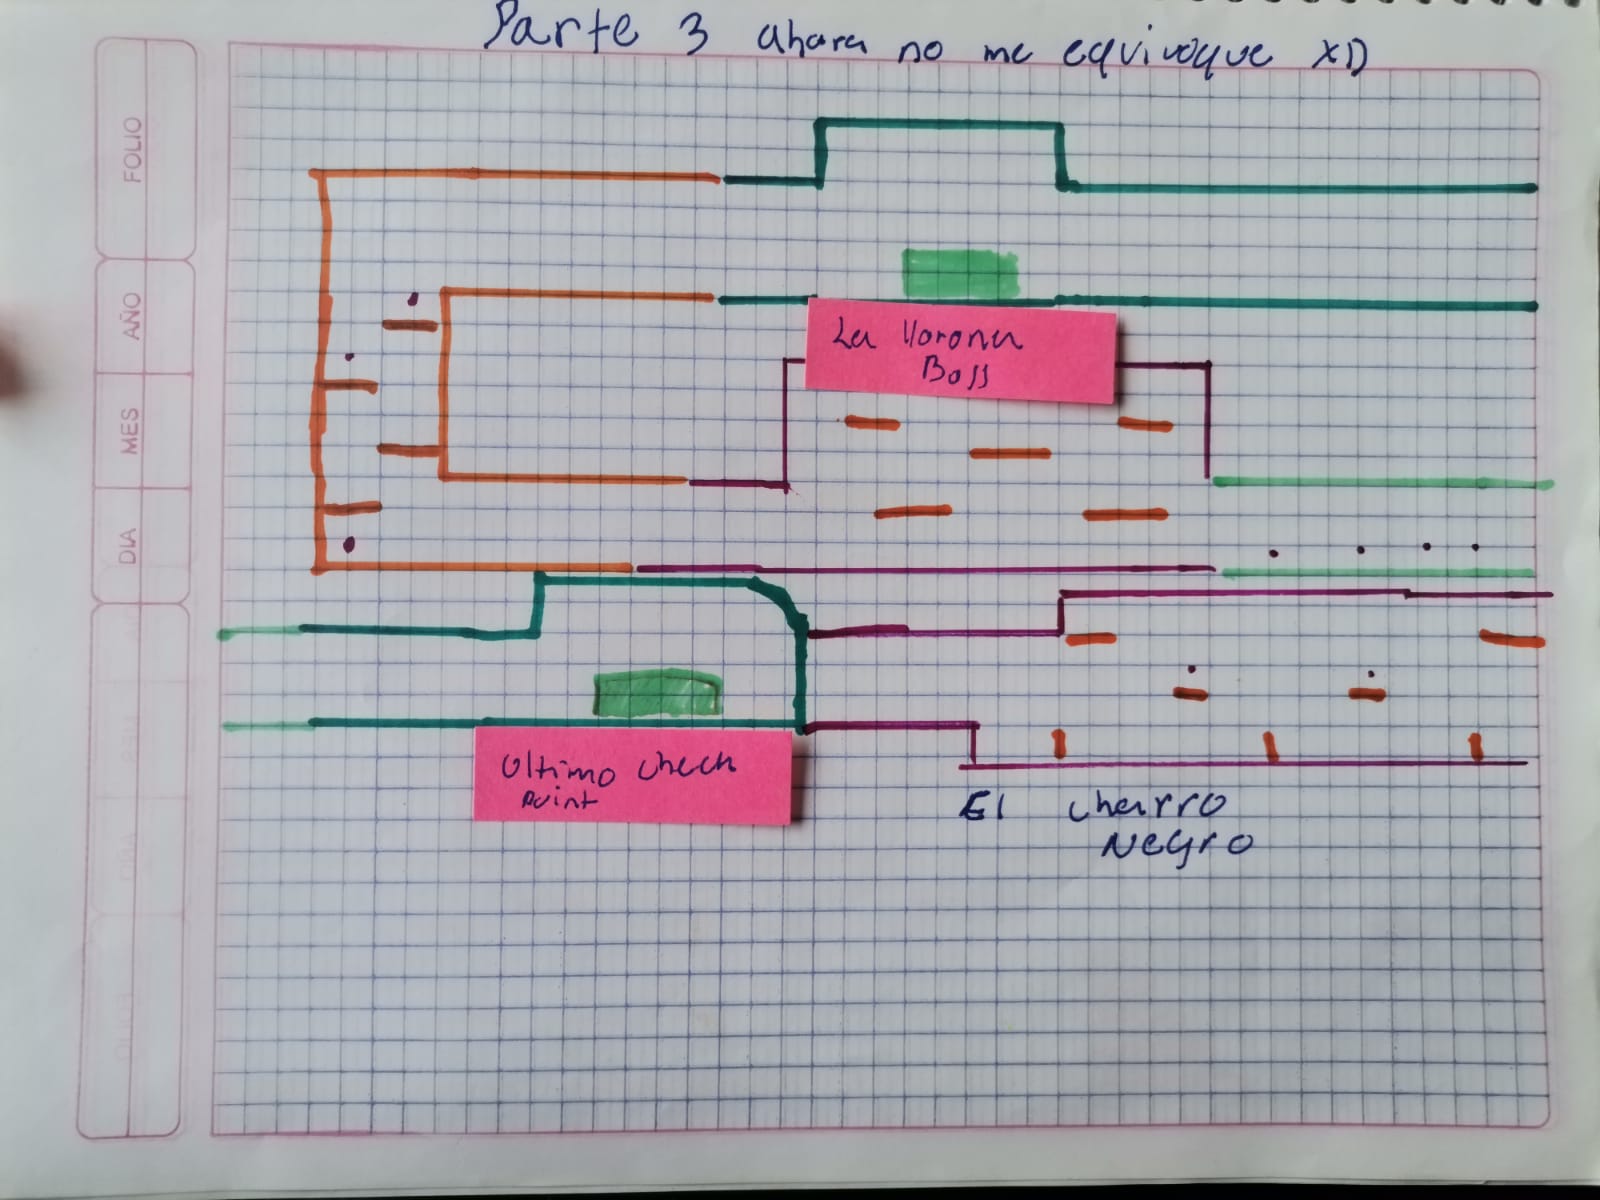 Parte 3 ahora no me equivoque XD
FOLIO
AÑO
MES
DIA
La llorona
Boss
Ultimo check
point
El charro
Negro